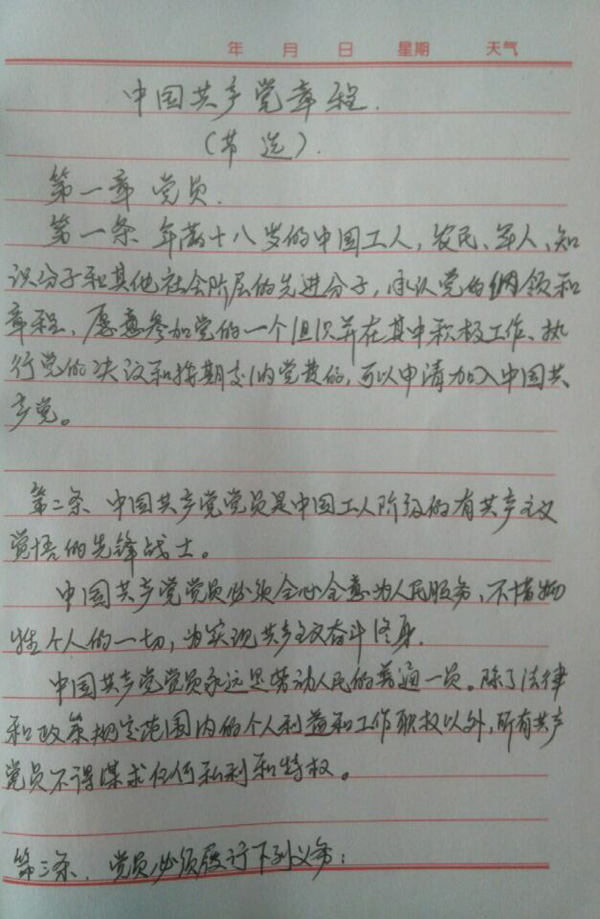 年 月 日 星期 天气
中国共产党章程.
(节选).
第一章 党员.
第一条 年满十八岁的中国工人,农民、军人、知
识分子和其他社会阶层的先进分子,承认党的纲领和
章程,愿意参加党的一个组织并在其中积极工作、执
行党的决议和按期交纳党费的,可以申请加入中国共
产党。
第二条 中国共产党党员是中国工人阶级的有共产主义
觉悟的先锋战士。
中国共产党党员必须全心全意为人民服务,不惜牺
牲个人的一切,为实现共产主义奋斗终身.
中国共产党党员永远是劳动人民的普通一员。除了法律
和政策规定范围内的个人利益和工作职权以外,所有共产
党员不得谋求任何私利和特权。
第三条. 党员必须履行下列义务: